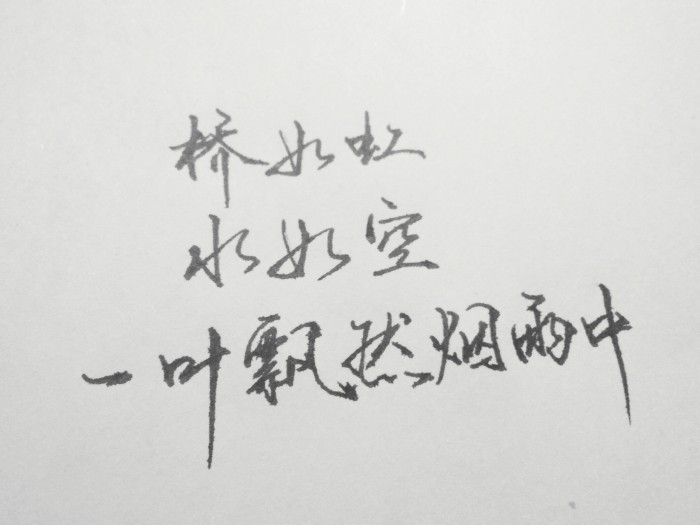 桥如虹
水如空
一叶飘然烟雨中